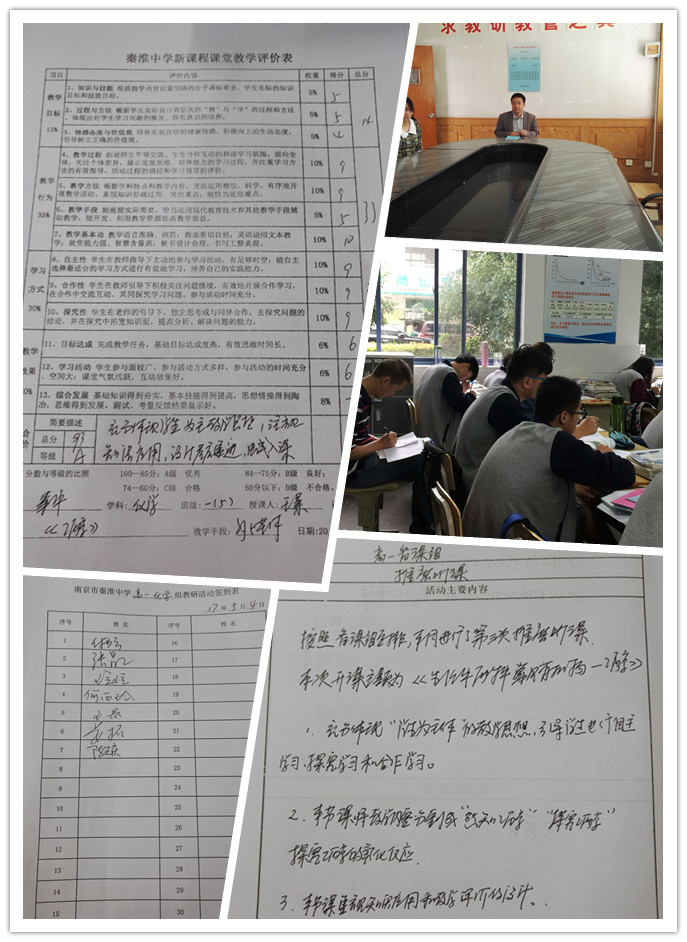 秦淮中学新课程课堂教学评价表
项目 评价内容 权重 得分 总分
教学目标 15%
1、知识与技能 根据教学内容设置明确的合乎课标要求、学生实际的知识目标和技能目标。 5% 5
2、过程与方法 根据学生实际设计有层次的“教”与“学”的过程和方法，体现出对学生学习兴趣的激发、探究意识的培养。 5% 5
3、情感态度与价值观 培养乐观自信的健康情感、积极向上的生活态度，引导树立正确的价值观。 5% 4
14
教学行为 35%
4、教学过程 创设师生平等交流、生生合作互动的和谐学习氛围，面向全体，关注个体差异，展示发展思维、培养能力的学习过程，并注重学习方法的有效指导、活动过程的调控和学习效果的评价。 10% 9
5、教学方法 根据学科特点和教学内容，灵活运用教法，科学、有序地开展教学活动，重视知识形成过程，突出重点，能恰当处理难点。 10% 9
6、教学手段 能根据实际需要，恰当运用现代教育技术和其他教学手段辅助教学；能开发、利用教学资源提高教学效益。 5% 5
7、教学基本功 教学语言准确、规范；教态亲切自然；灵活运用文本教学；应变能力强，智慧含量高；板书设计合理，书写工整美观。 10% 10
33
学习方式 30%
8、自主性 学生在教师指导下主动地参与学习活动，有足够时空，能自主选择最适合的学习方式进行有效地学习，培养自己的实践能力。 10% 9
9、合作性 学生在教师引导下积极关注问题情境，有效地开展合作学习，在合作中交流互动、共同探究学习问题，参与活动时间充分。 10% 9
10、探究性 学生在老师的引导下，独立思考或与同伴合作，去探究问题的结论，并在探究中拓宽知识面，提高分析、解决问题的能力。 10% 9
11、目标达成 完成教学任务，基础目标达成度高，有效思维时间长。 6% 6
12、学习活动 学生参与面较广，参与活动方式多样，参与活动的时间充分、空间大；课堂气氛活跃，互动效果好。 6% 6
13、综合发展 基础知识得到夯实，基本技能得到提高，思想情操得到陶冶，思维得到发展。测试、考量反馈结果显示好。 8%
简要描述
总分 93
等级 A
充分体现学生为主的教学思想，注重
知识应用，设计
分数与等级的比照 100—85分：A级 优秀 84—75分：B级 良好；
74—60分：C级 合格 60分以下：D级 不合格。
学科：化学 班级：一(5) 授课人：王磊
《乙醇》
教学手段： 日期：20
求教研教管之真
南京市秦淮中学高一化学组教研活动签到表
17年5月4日
序号 姓名 序号 姓名
1 16
2 张 17
3 18
4 何西玲 19
5 王磊 20
6 21
7 22
8 23
9 24
10 25
11 26
12 27
13 28
14 29
15 30
高一备课组
推磨听课
活动主要内容
按照备课组安排，本月进行了第三次推磨听课.
本次开课主题为《生活中两种常见有机物—乙醇》
1. 充分体现“学生为主体”的教学思想，引导学生进行自主
学习、探究学习和合作学习。
2. 本节课将教学内容分割成“感知乙醇”“探究乙醇”
探究乙醇的氧化反应.
3. 本节课重视知识应用和教学评价的设计。